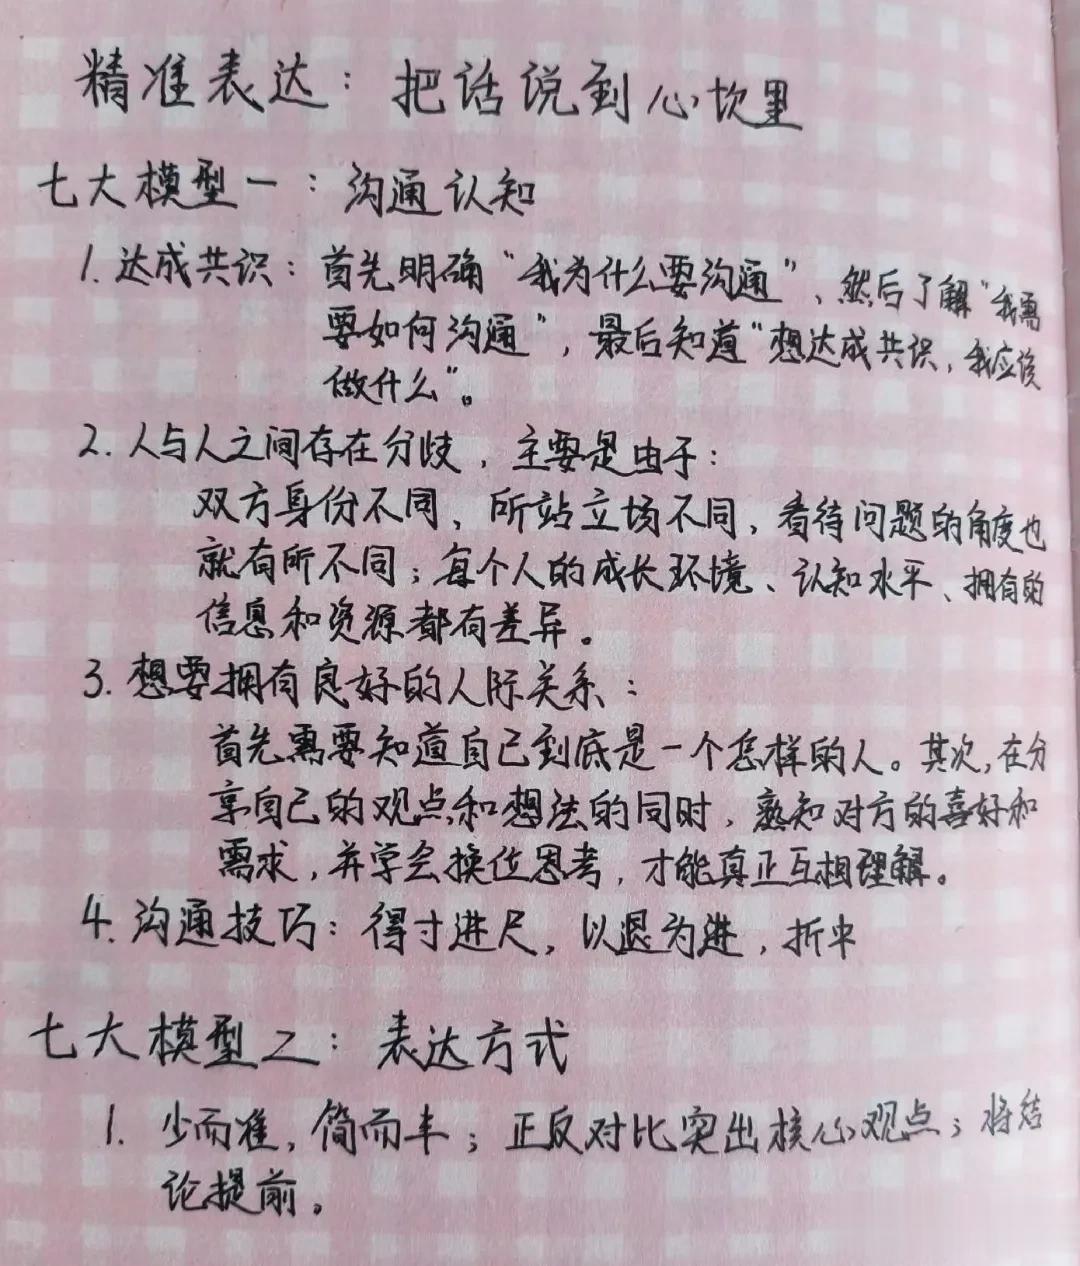 精准表达：把话说到心坎里
七大模型一：沟通认知
1. 达成共识：首先明确“我为什么要沟通”、然后了解“我需
要如何沟通”，最后知道“想达成共识，我应该
做什么”。
2. 人与人之间存在分歧，主要是由于：
双方身份不同，所站立场不同，看待问题的角度也
就有所不同；每个人的成长环境、认知水平、拥有的
信息和资源都有差异。
3. 想要拥有良好的人际关系：
首先需要知道自己到底是一个怎样的人。其次，在分
享自己的观点和想法的同时，熟知对方的喜好和
需求，并学会换位思考，才能真正互相理解。
4. 沟通技巧：得寸进尺，以退为进，折中
七大模型之：表达方式
1. 少而准，简而丰；正反对比突出核心观点；将结
论提前。